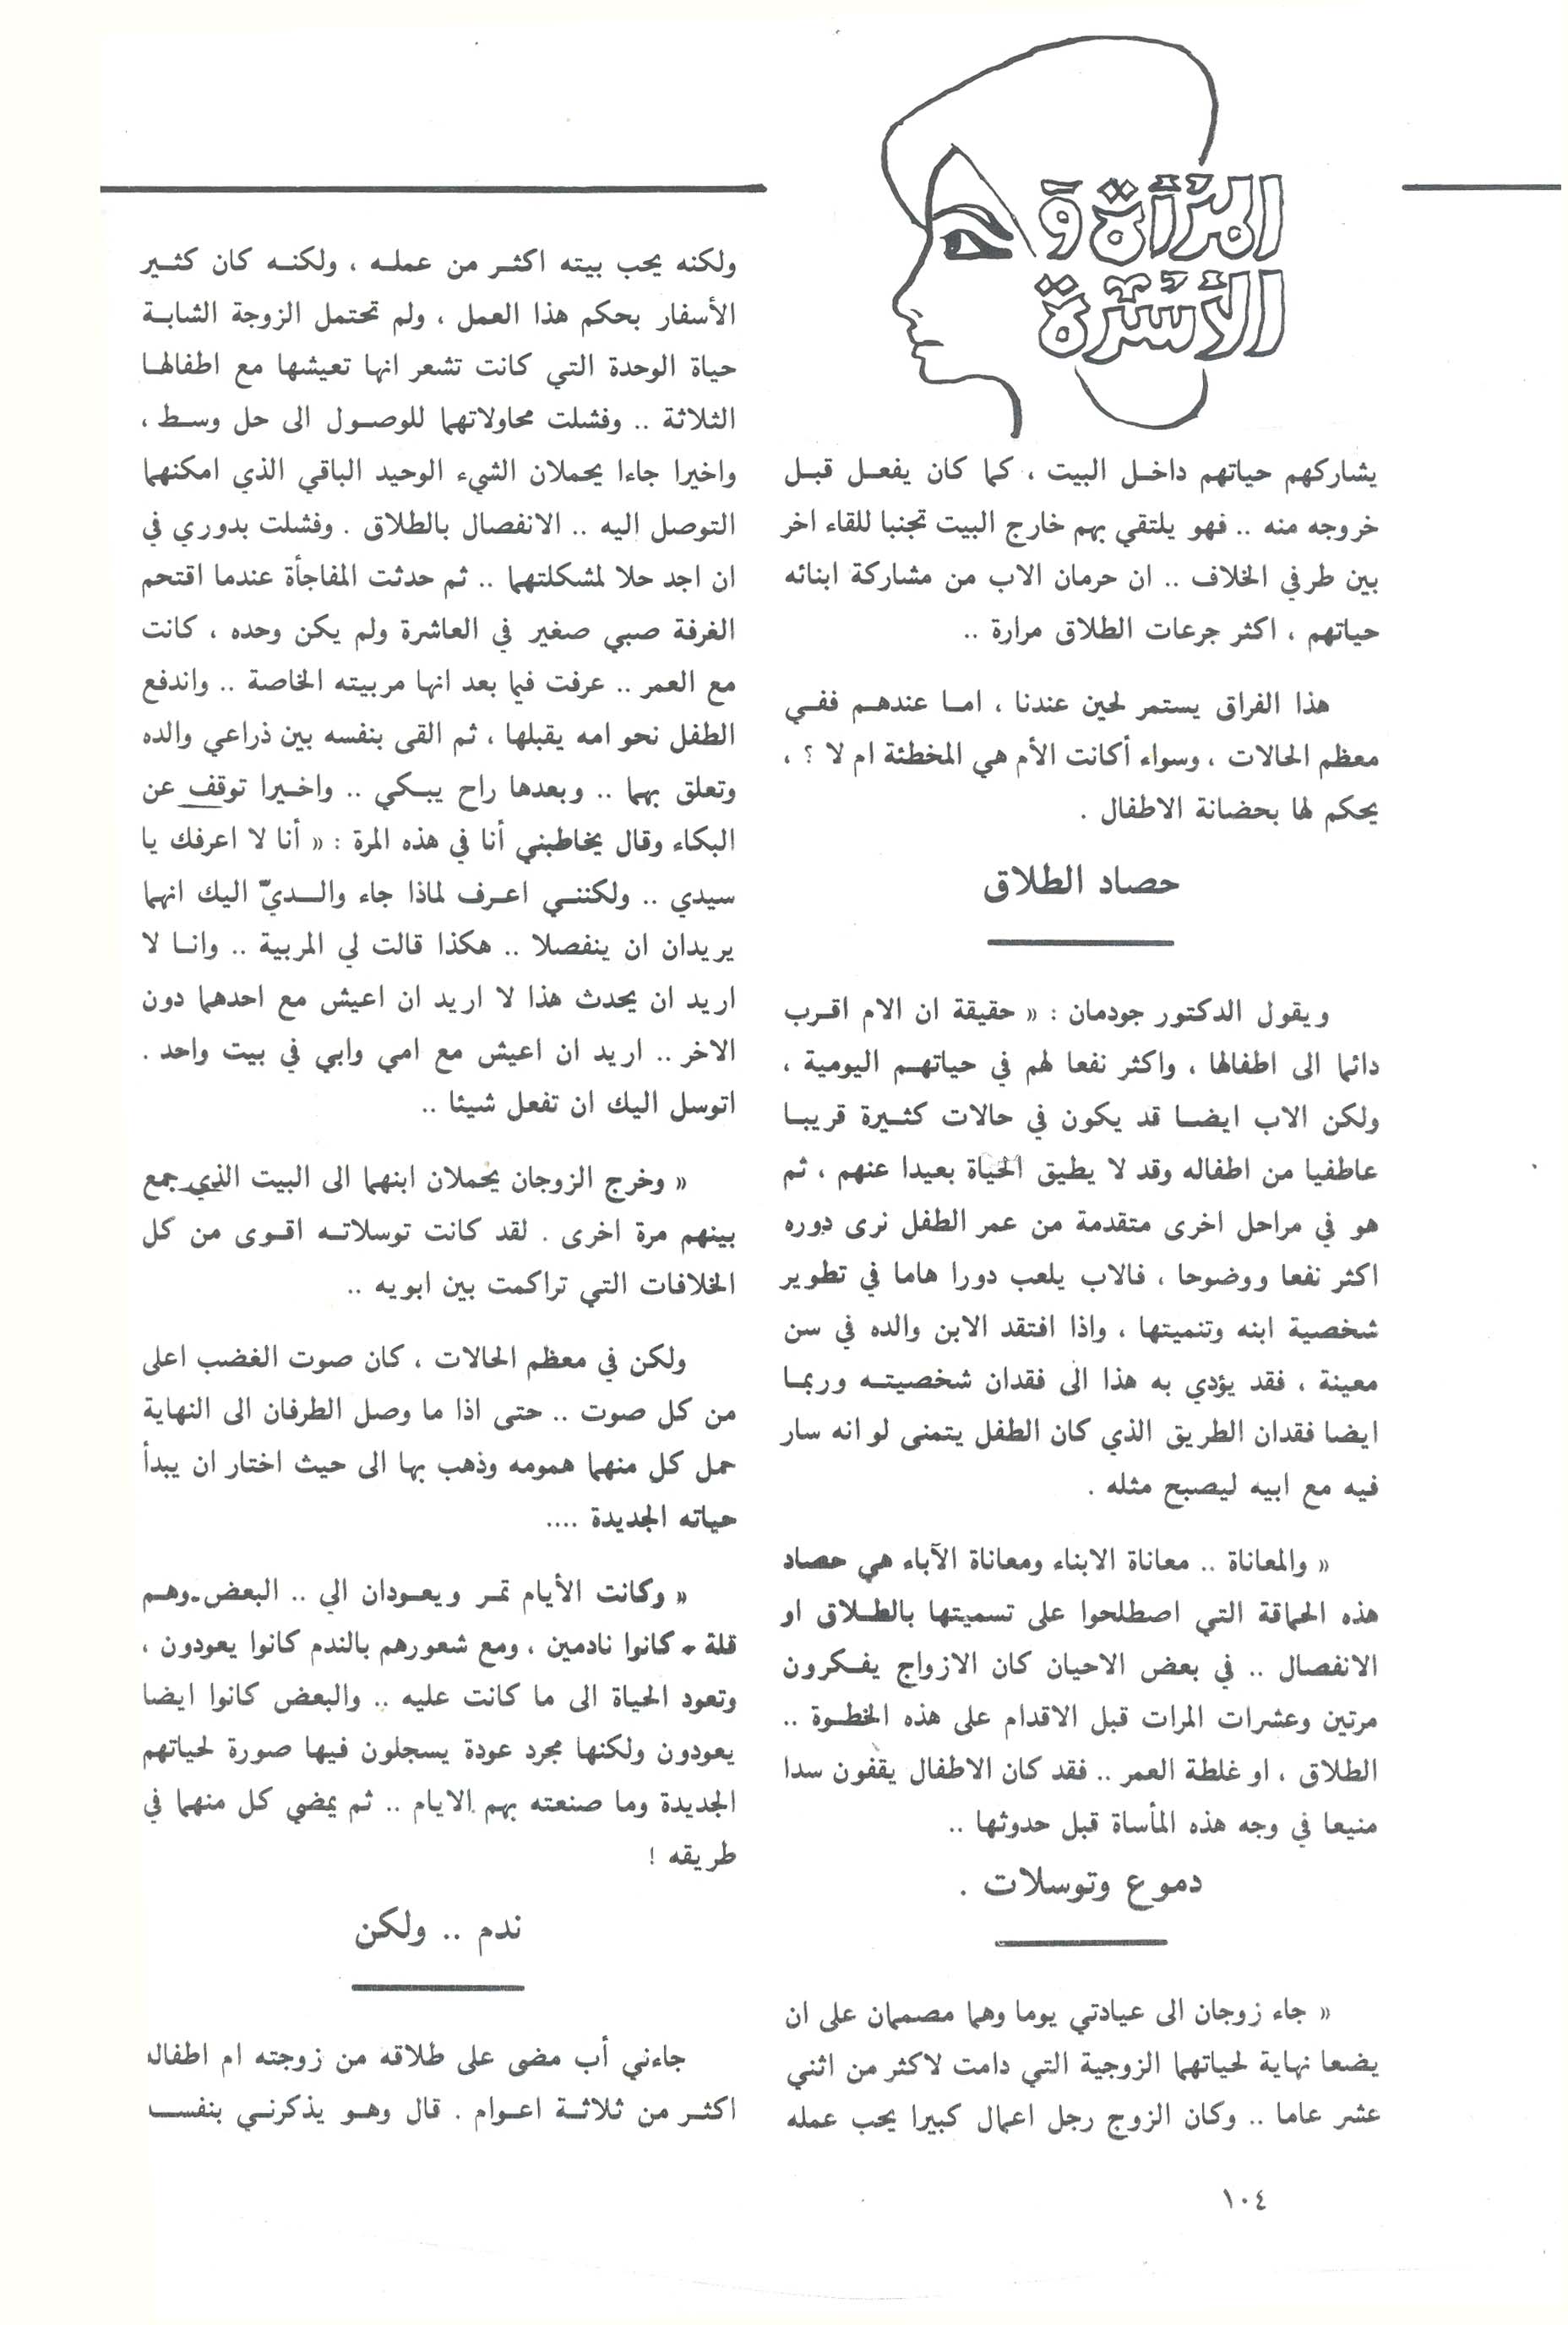 المرأة و
الأسرة
يشاركهم حياتهم داخـل البيت ، كما كان يفعـل قبـل
خروجه منه .. فهو يلتقي بهم خارج البيت تجنبا للقاء اخر
بين طرفي الخلاف .. ان حرمان الاب من مشاركة ابنائه
حياتهم ، اكثر جرعات الطلاق مرارة ..
هذا الفراق يستمر لحين عندنا ، امـا عندهـم ففـي
معظم الحالات ، وسواء أكانت الأم هي المخطئة ام لا ؟ ،
يحكم لها بحضانة الاطفال .
حصاد الطلاق
ويقول الدكتور جودمان : « حقيقة ان الام اقـرب
دائما الى اطفالها ، واكثر نفعا لهم في حياتهـم اليومية ،
ولكن الاب ايضـا قد يكون في حالات كثـيرة قريبـا
عاطفيا من اطفاله وقد لا يطيق الحياة بعيدا عنهم ، ثم
هو في مراحل اخرى متقدمة من عمر الطفل نرى دوره
اكثر نفعا ووضوحا ، فالاب يلعب دورا هاما في تطوير
شخصية ابنه وتنميتها ، واذا افتقد الابن والده في سن
معينة ، فقد يؤدي به هذا الى فقدان شخصيتـه وربمـا
ايضا فقدان الطريق الذي كان الطفل يتمنى لو انه سار
فيه مع ابيه ليصبح مثله .
« والمعاناة .. معاناة الابناء ومعاناة الآباء هي حصاد
هذه الحماقة التي اصطلحوا على تسميتها بالطـلاق او
الانفصال .. في بعض الاحيان كان الازواج يفـكرون
مرتين وعشرات المرات قبل الاقدام على هذه الخطـوة ..
الطلاق ، او غلطة العمر .. فقد كان الاطفال يقفون سدا
منيعا في وجه هذه المأساة قبل حدوثها ..
دموع وتوسلات .
« جاء زوجان الى عيادتي يوما وهما مصممان على ان
يضعا نهاية لحياتهما الزوجية التي دامت لاكثر من اثني
عشر عاما .. وكان الزوج رجل اعمال كبيرا يحب عمله
ولكنه يحب بيته اكثـر من عملـه ، ولكنـه كان كثـير
الأسفار بحكم هذا العمل ، ولم تحتمل الزوجة الشابـة
حياة الوحدة التي كانت تشعر انها تعيشها مع اطفالهـا
الثلاثة .. وفشلت محاولاتهما للوصـول الى حل وسـط ،
واخيرا جاءا يحملان الشيء الوحيد الباقي الذي امكنهما
التوصل اليه .. الانفصال بالطلاق . وفشلت بدوري في
ان اجد حلا لمشكلتهما .. ثم حدثت المفاجأة عندما اقتحم
الغرفة صبي صغير في العاشرة ولم يكن وحده ، كانت
مع العمر .. عرفت فيما بعد انها مربيته الخاصة .. واندفع
الطفل نحو امه يقبلها ، ثم القى بنفسه بين ذراعي والده
وتعلق بهما .. وبعدها راح يبـكي .. واخـيرا توقف عن
البكاء وقال يخاطبني أنا في هذه المرة : « أنا لا اعرفك يا
سيدي .. ولكننـي اعـرف لماذا جاء والـديّ اليك انهما
يريدان ان ينفصلا .. هكذا قالت لي المربية .. وانـا لا
اريد ان يحدث هذا لا اريد ان اعيش مع احدهما دون
الاخر .. اريد ان اعيش مع امي وابي في بيت واحد .
اتوسل اليك ان تفعل شيئا ..
« وخرج الزوجان يحملان ابنهما الى البيت الذي جمع
بينهم مرة اخرى . لقد كانت توسلاتـه اقـوى من كل
الخلافات التي تراكمت بين ابويه ..
ولكن في معظم الحالات ، كان صوت الغضب اعلى
من كل صوت .. حتى اذا ما وصل الطرفان الى النهاية
حمل كل منهما همومه وذهب بها الى حيث اختار ان يبدأ
حياته الجديدة ....
« وكانت الأيام تمـر ويعـودان الي .. البعض - وهـم
قلة - كانوا نادمين ، ومع شعورهم بالندم كانوا يعودون ،
وتعود الحياة الى ما كانت عليه .. والبعض كانوا ايضا
يعودون ولكنها مجرد عودة يسجلون فيها صورة لحياتهم
الجديدة وما صنعته بهم الايام .. ثم يمضي كل منهما في
طريقه !
ندم .. ولكن
جاءني أب مضى على طلاقه من زوجته ام اطفاله
اكثـر من ثلاثـة اعـوام . قال وهـو يذكرنـي بنفسـه
١٠٤